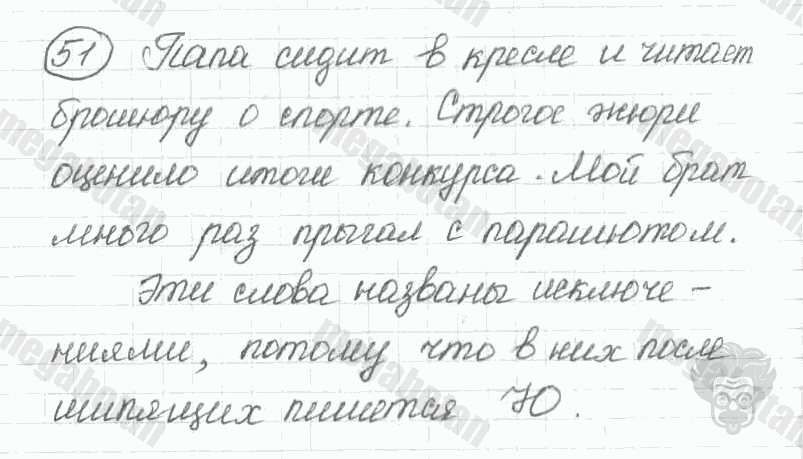 51 Папа сидит в кресле и читает
брошюру о спорте. Строгое жюри
оценило итоги конкурса. Мой брат
много раз прыгал с парашютом.
Эти слова названы исключе-
ниями, потому что в них после
шипящих пишется Ю.
megabotan